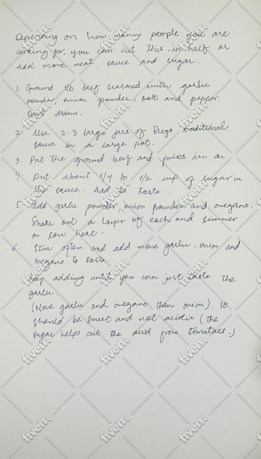 Depending on how many people you are
cooking for, you can cut this in half or
add more meat, sauce and sugar.
1. Ground 1lb beef seasoned with garlic
powder, onion powder, salt and pepper.
Don't drain.
2. Use 2-3 large jars of Prego traditional
sauce in a large pot.
3. Put the ground beef and juices in as
4. Put about 1/4 to 1/2 cup of sugar in
the sauce. Add to taste.
5. Add garlic powder, onion powder and oregano.
Shake out a layer of each and simmer
on low heat.
6. Stir often and add more garlic, onion and
oregano to taste.
Keep adding until you can just taste the
garlic.
(More garlic and oregano than onion). It
should be sweet and not acidic (the
sugar helps cut the acid from tomatoes.)
fiverr